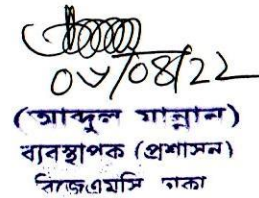 ০৮/০৪/২২
(আব্দুল মান্নান)
ব্যবস্থাপক (প্রশাসন)
বিজেএমসি ঢাকা